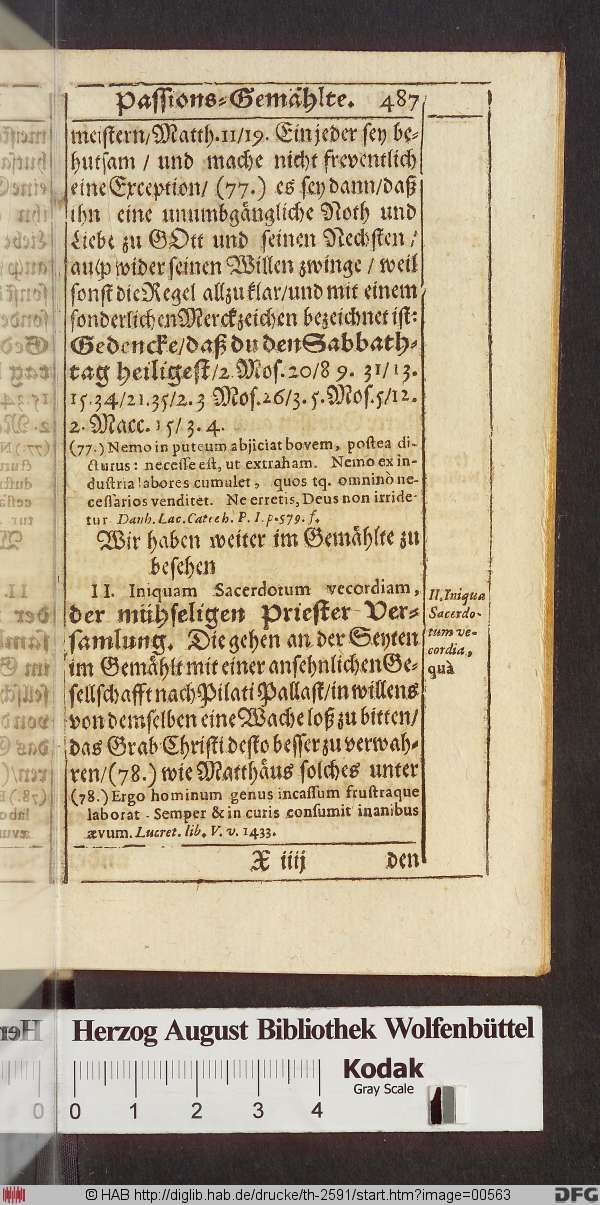 Passions-Gemählte. 487
meistern/Matth.11/19. Ein jeder sey be-
hutsam / und mache nicht freventlich
eine Exception/ (77.) es sey dann/daß
ihn eine unumbgängliche Noth und
Liebe zu GOtt und seinen Nechsten /
auch wider seinen Willen zwinge / weil
sonst die Regel allzu klar/und mit einem
sonderlichen Merckzeichen bezeichnet ist:
Gedencke/daß du den Sabbath-
tag heiligest/2. Mos. 20/8 9. 31/13.
15.34/21.35/2.3 Mos.26/3. 5. Mos.5/12.
2. Macc. 15/ 3. 4.
(77.) Nemo in puteum abjiciat bovem, postea di-
cturus: necesse est, ut extraham. Nemo ex in-
dustria labores cumulet, quos tq. omninò ne-
cessarios venditet. Ne erretis, Deus non irride-
tur Danh. Lac. Catech. P. I. p. 579. f.
Wir haben weiter im Gemählte zu
besehen
II. Iniquam Sacerdotum vecordiam,
der mühseligen Priester Ver-
samlung. Die gehen an der Seyten
im Gemählt mit einer ansehnlichen Ge-
sellschafft nach Pilati Pallast/in willens
von demselben eine Wache loß zu bitten/
das Grab Christi desto besser zu verwah-
ren/(78.) wie Matthäus solches unter
(78.) Ergo hominum genus incassum frustraque
laborat. Semper & in curis consumit inanibus
ævum. Lucret. lib. V. v. 1433.
X iiij den
II. Iniqua
Sacerdo-
tum ve-
cordia,
quà
Herzog August Bibliothek Wolfenbüttel
Kodak
Gray Scale
0 0 1 2 3 4
© HAB http://diglib.hab.de/drucke/th-2591/start.htm?image=00563
DFG